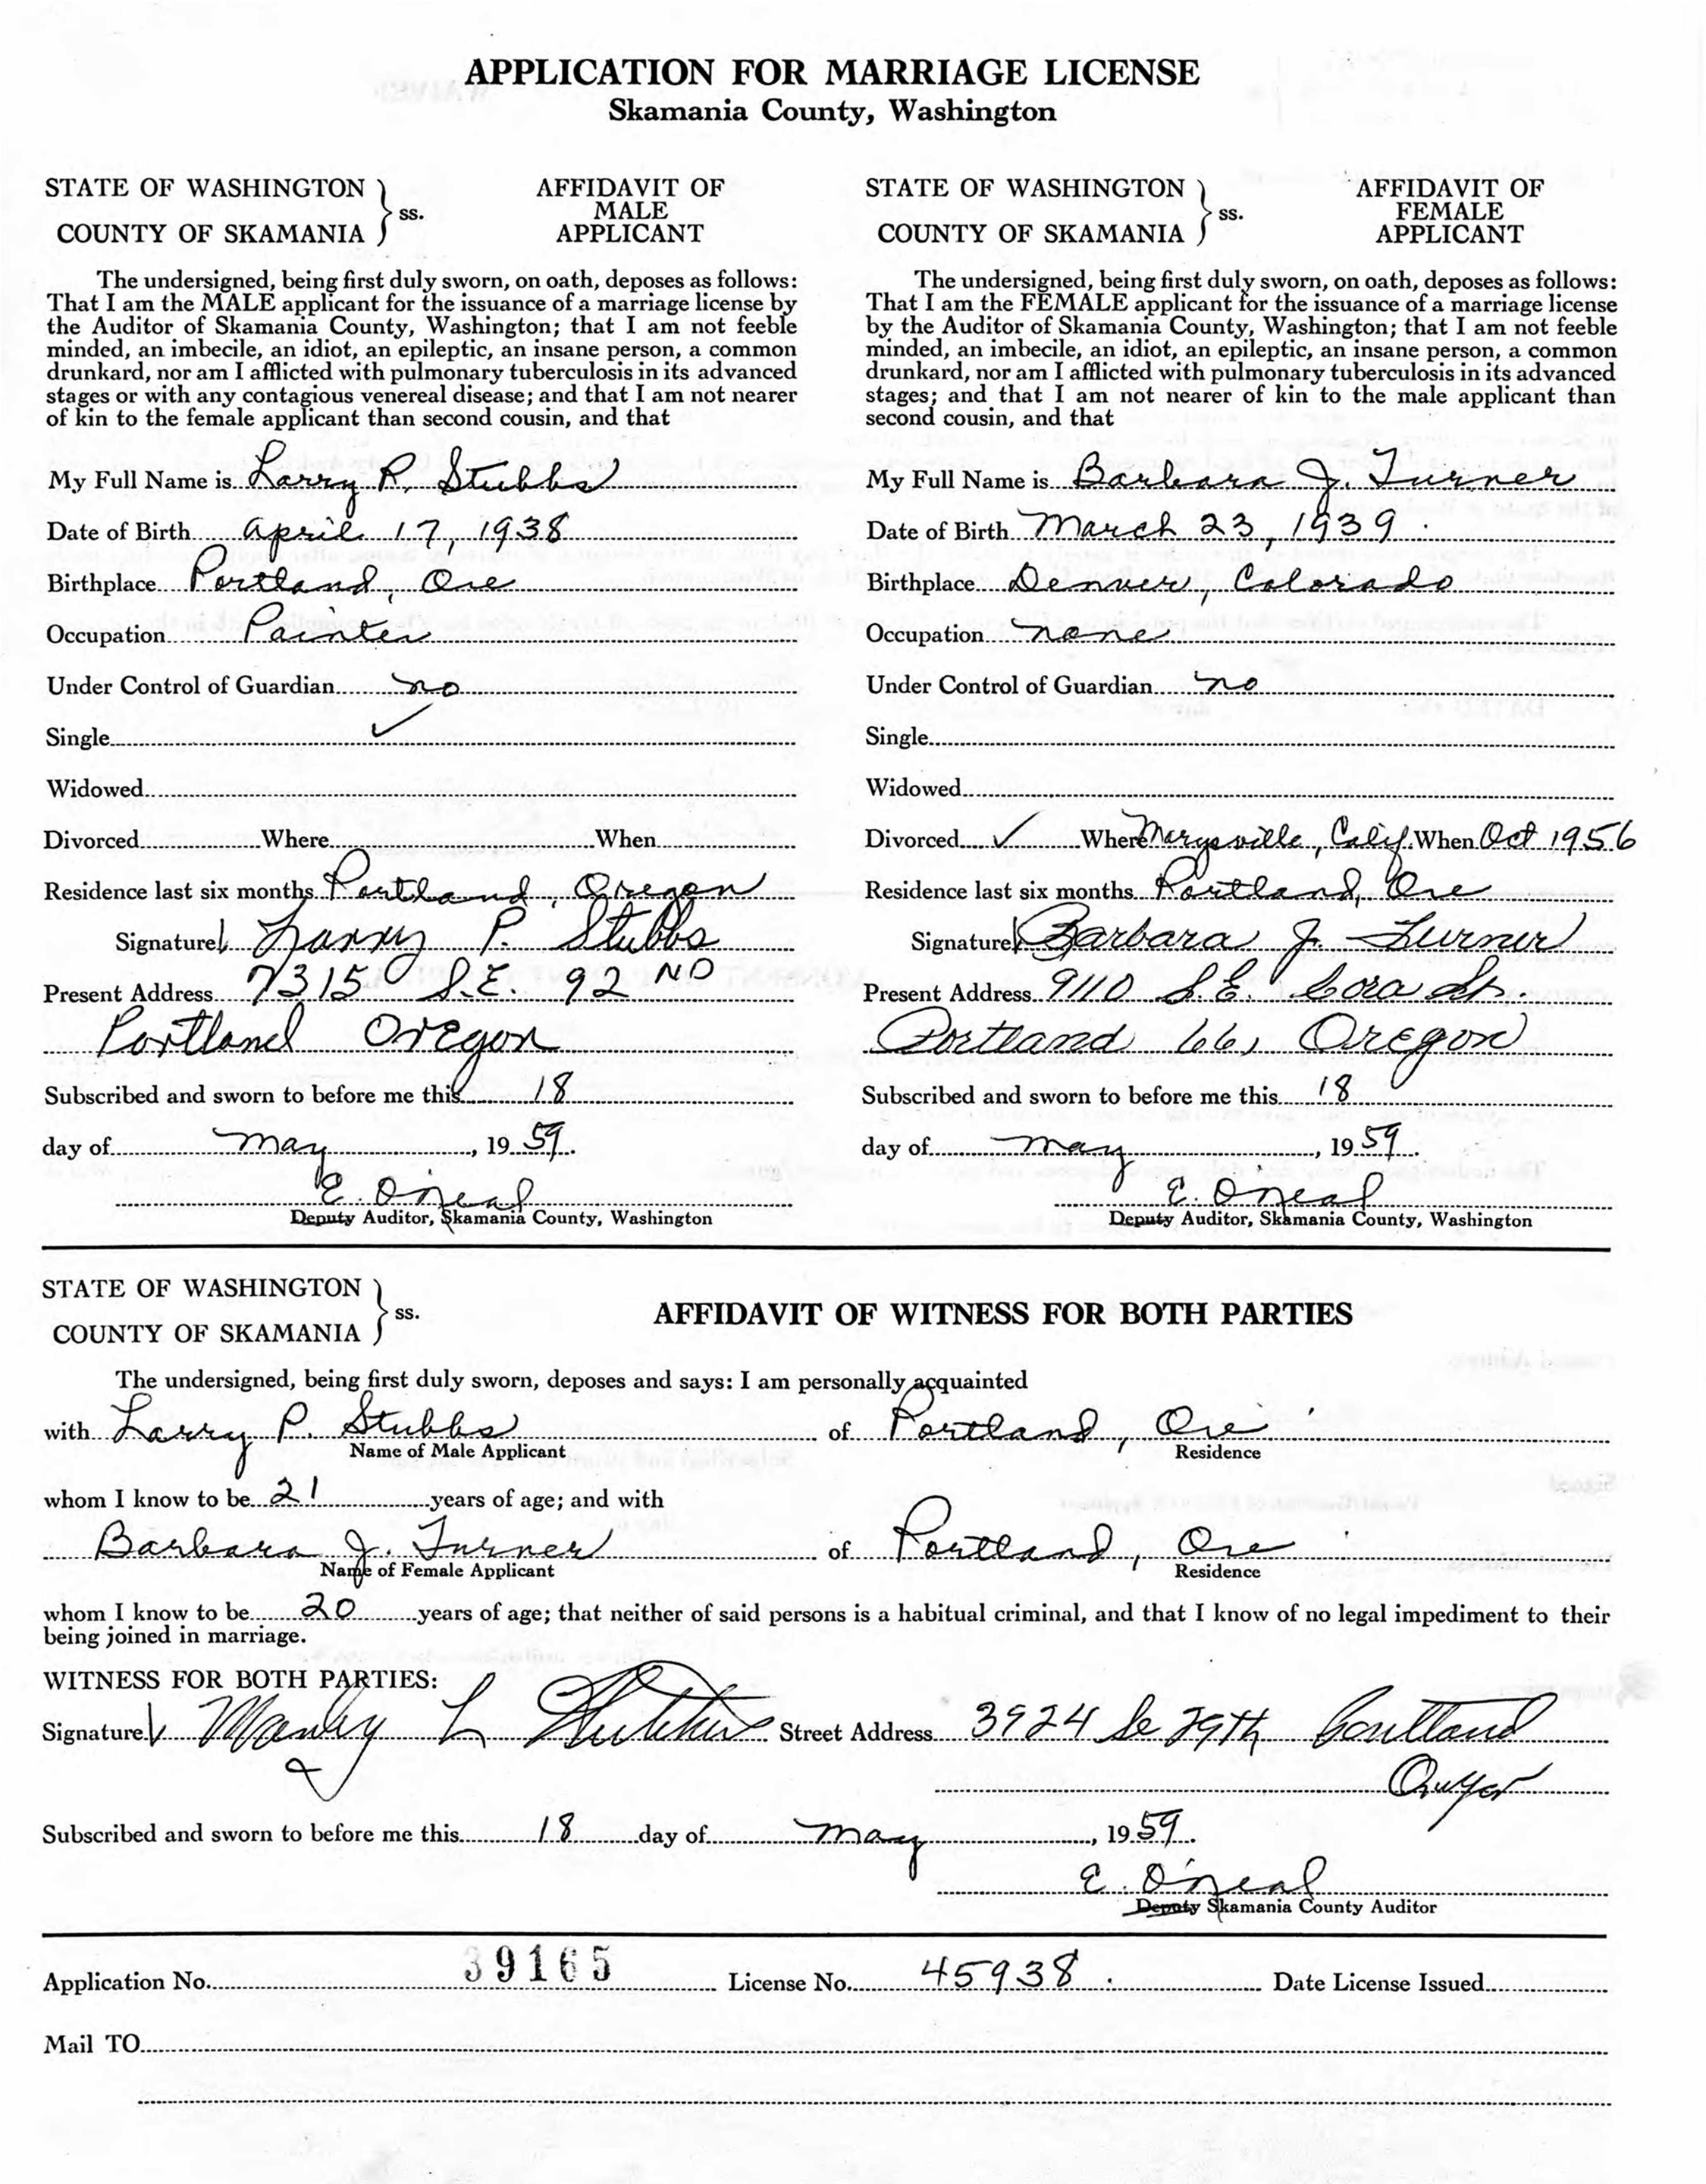 APPLICATION FOR MARRIAGE LICENSE
Skamania County, Washington
STATE OF WASHINGTON
COUNTY OF SKAMANIA
} ss.
AFFIDAVIT OF
MALE
APPLICANT
The undersigned, being first duly sworn, on oath, deposes as follows:
That I am the MALE applicant for the issuance of a marriage license by
the Auditor of Skamania County, Washington; that I am not feeble
minded, an imbecile, an idiot, an epileptic, an insane person, a common
drunkard, nor am I afflicted with pulmonary tuberculosis in its advanced
stages or with any contagious venereal disease; and that I am not nearer
of kin to the female applicant than second cousin, and that
My Full Name is Larry P. Stubbs
Date of Birth April 17, 1938
Birthplace Portland, Ore
Occupation Painter
Under Control of Guardian no
Single ✓
Widowed
Divorced Where When
Residence last six months Portland, Oregon
Signature Larry P. Stubbs
Present Address 7315 S.E. 92 ND
Portland Oregon
Subscribed and sworn to before me this 18
day of May, 1959.
E. O'Neal
Deputy Auditor, Skamania County, Washington
STATE OF WASHINGTON
COUNTY OF SKAMANIA
} ss.
AFFIDAVIT OF
FEMALE
APPLICANT
The undersigned, being first duly sworn, on oath, deposes as follows:
That I am the FEMALE applicant for the issuance of a marriage license
by the Auditor of Skamania County, Washington; that I am not feeble
minded, an imbecile, an idiot, an epileptic, an insane person, a common
drunkard, nor am I afflicted with pulmonary tuberculosis in its advanced
stages; and that I am not nearer of kin to the male applicant than
second cousin, and that
My Full Name is Barbara J. Turner
Date of Birth March 23, 1939.
Birthplace Denver, Colorado
Occupation none
Under Control of Guardian no
Single
Widowed
Divorced ✓ Where Marysville, Calif. When Oct 1956
Residence last six months Portland, Ore
Signature Barbara J. Turner
Present Address 9110 S.E. Cora St.
Portland 66, Oregon
Subscribed and sworn to before me this 18
day of May, 1959.
E. O'Neal
Deputy Auditor, Skamania County, Washington
STATE OF WASHINGTON
COUNTY OF SKAMANIA
} ss.
AFFIDAVIT OF WITNESS FOR BOTH PARTIES
The undersigned, being first duly sworn, deposes and says: I am personally acquainted
with Larry P. Stubbs of Portland, Ore
Name of Male Applicant Residence
whom I know to be 21 years of age; and with
Barbara J. Turner of Portland, Ore
Name of Female Applicant Residence
whom I know to be 20 years of age; that neither of said persons is a habitual criminal, and that I know of no legal impediment to their
being joined in marriage.
WITNESS FOR BOTH PARTIES:
Signature Manley L Street Address 3924 Se 79th Portland
Oregon
Subscribed and sworn to before me this 18 day of May, 1959.
E. O'Neal
Deputy Skamania County Auditor
Application No. 39165 License No. 45938. Date License Issued
Mail TO